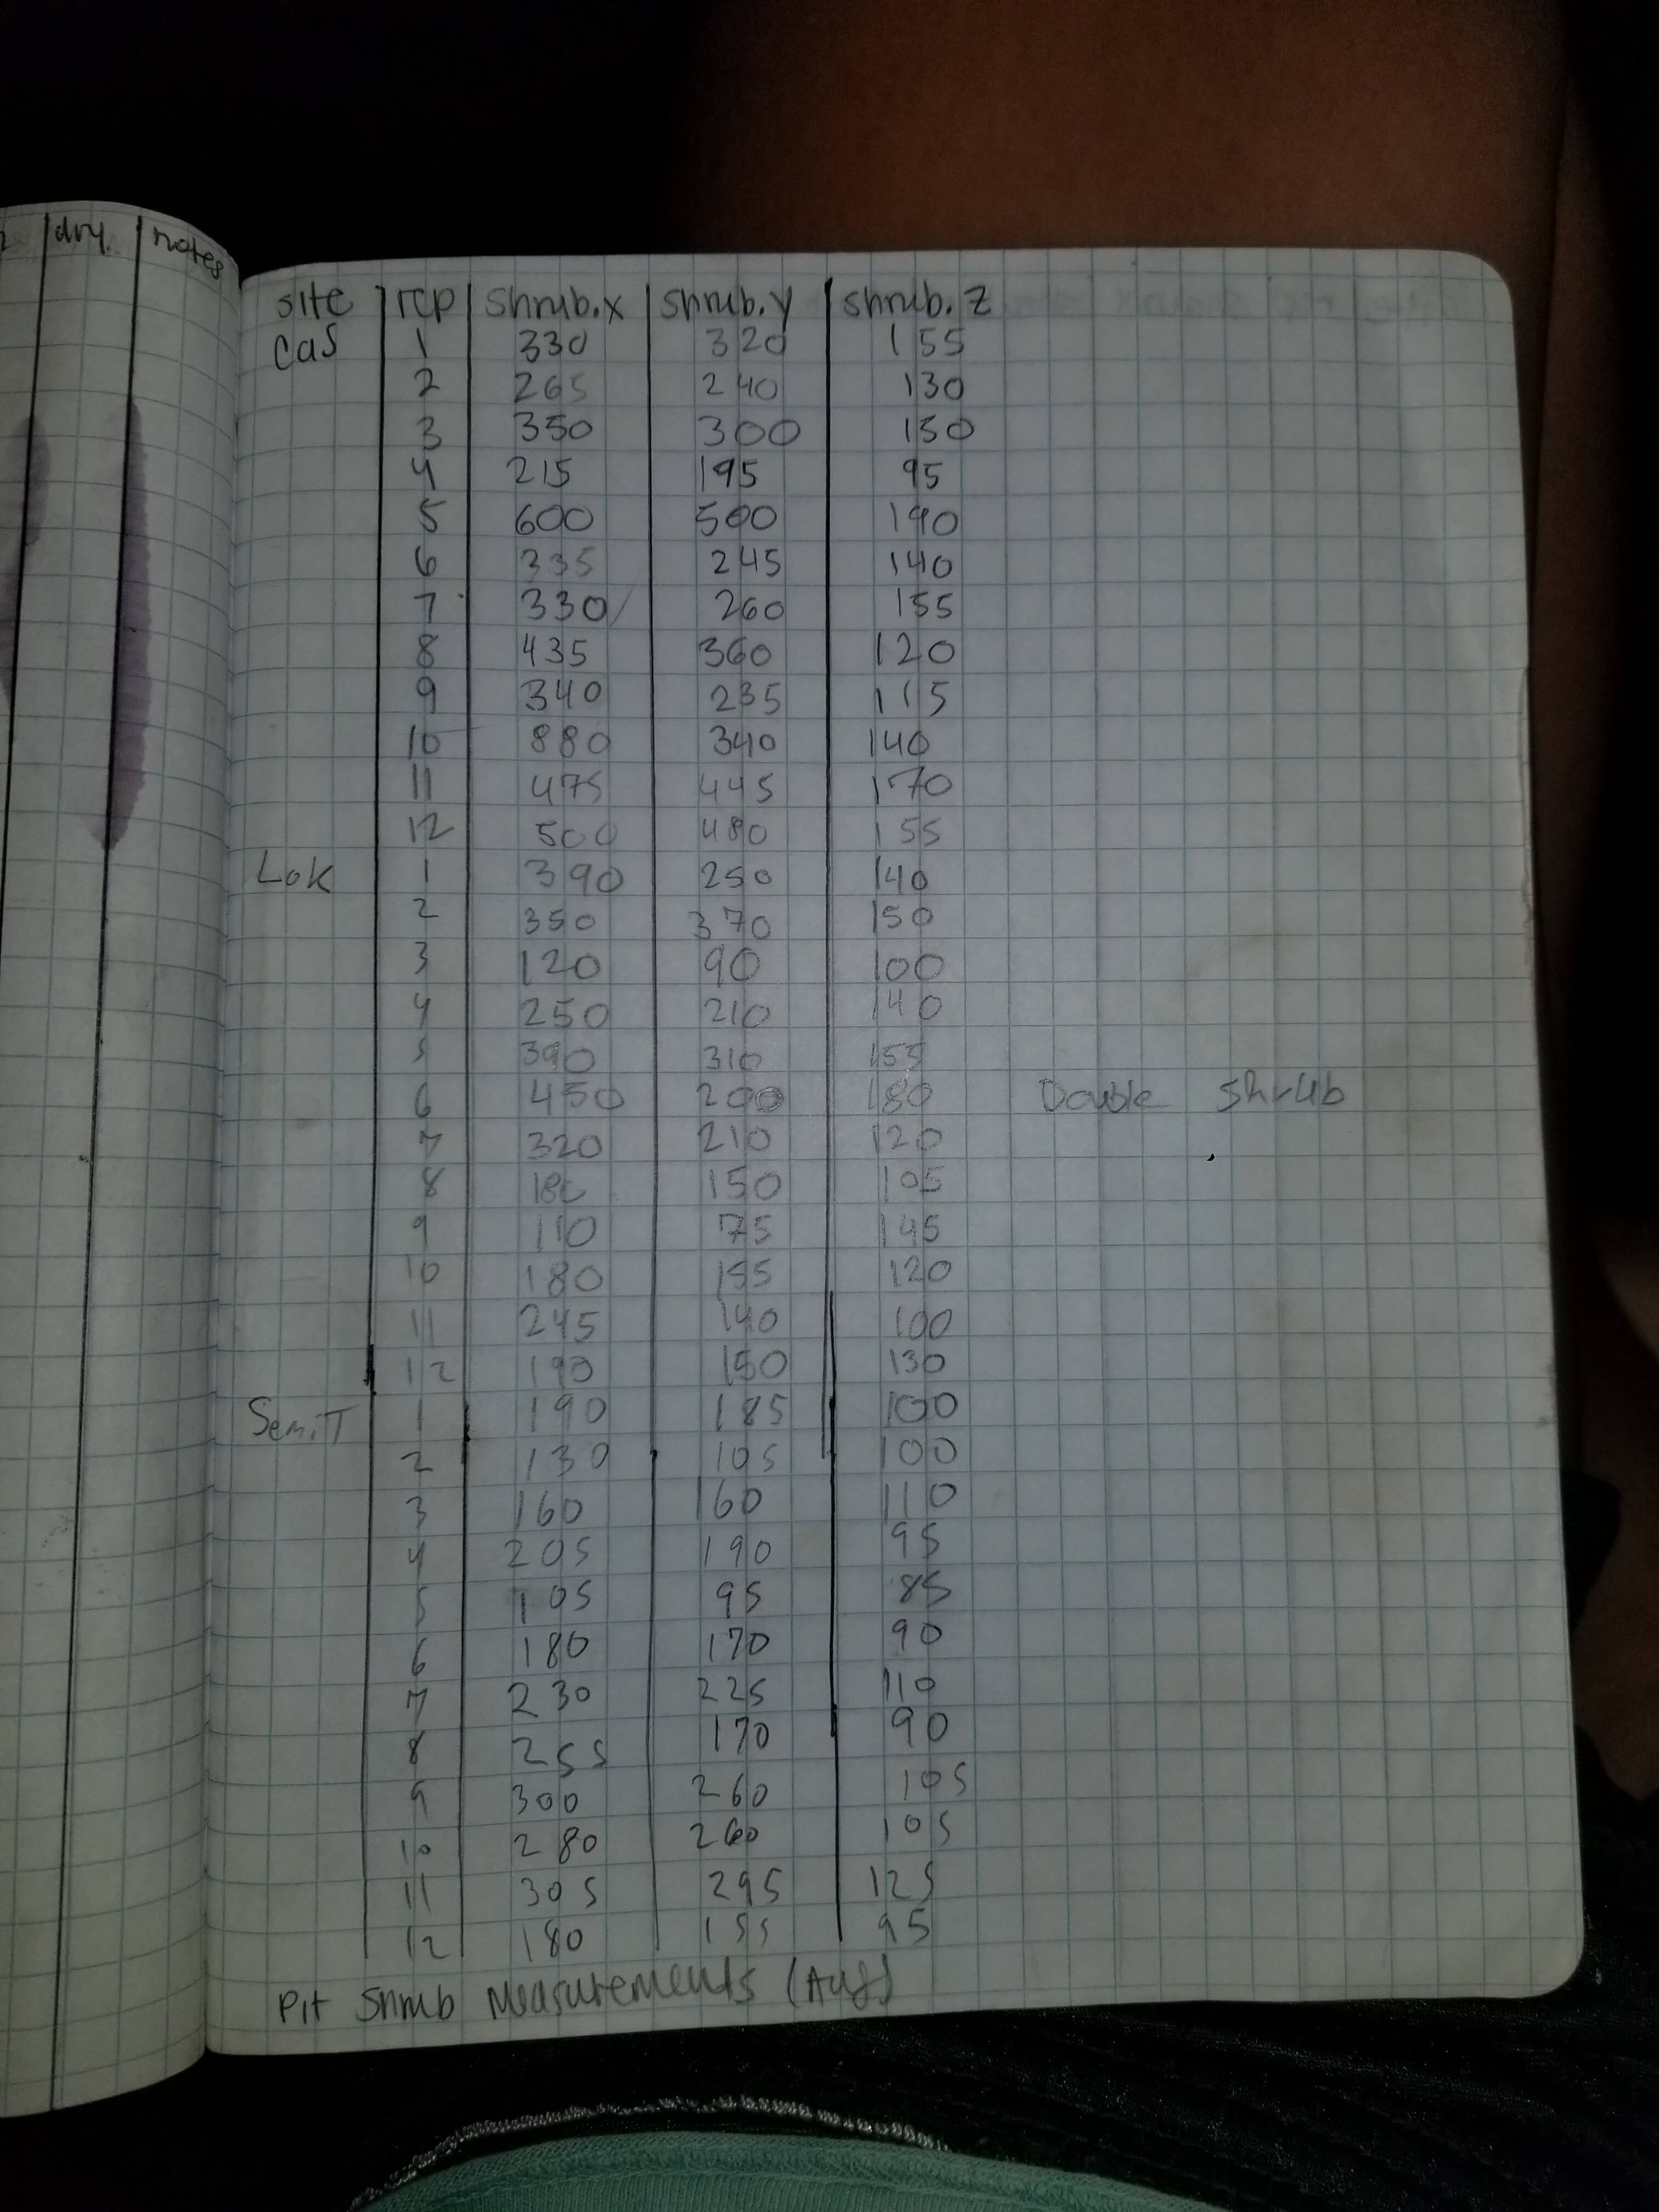 dry. notes
site rep shrub.x shrub.y shrub.z
CaS 1 330 320 155
2 265 240 130
3 350 300 150
4 215 195 95
5 600 500 190
6 335 245 140
7 330 260 155
8 435 360 120
9 340 235 115
10 880 340 140
11 475 445 170
12 500 480 155
Lok 1 390 250 140
2 350 370 150
3 120 90 100
4 250 210 140
5 390 310 155
6 450 200 180 Double shrub
7 320 210 120
8 180 150 105
9 110 75 145
10 180 155 120
11 245 140 100
12 190 150 130
SemiT 1 190 185 100
2 130 105 100
3 160 160 110
4 205 190 95
5 105 95 85
6 180 170 90
7 230 225 110
8 255 170 90
9 300 260 105
10 280 260 105
11 305 295 125
12 180 155 95
Pit Shrub Measurements (Aug)